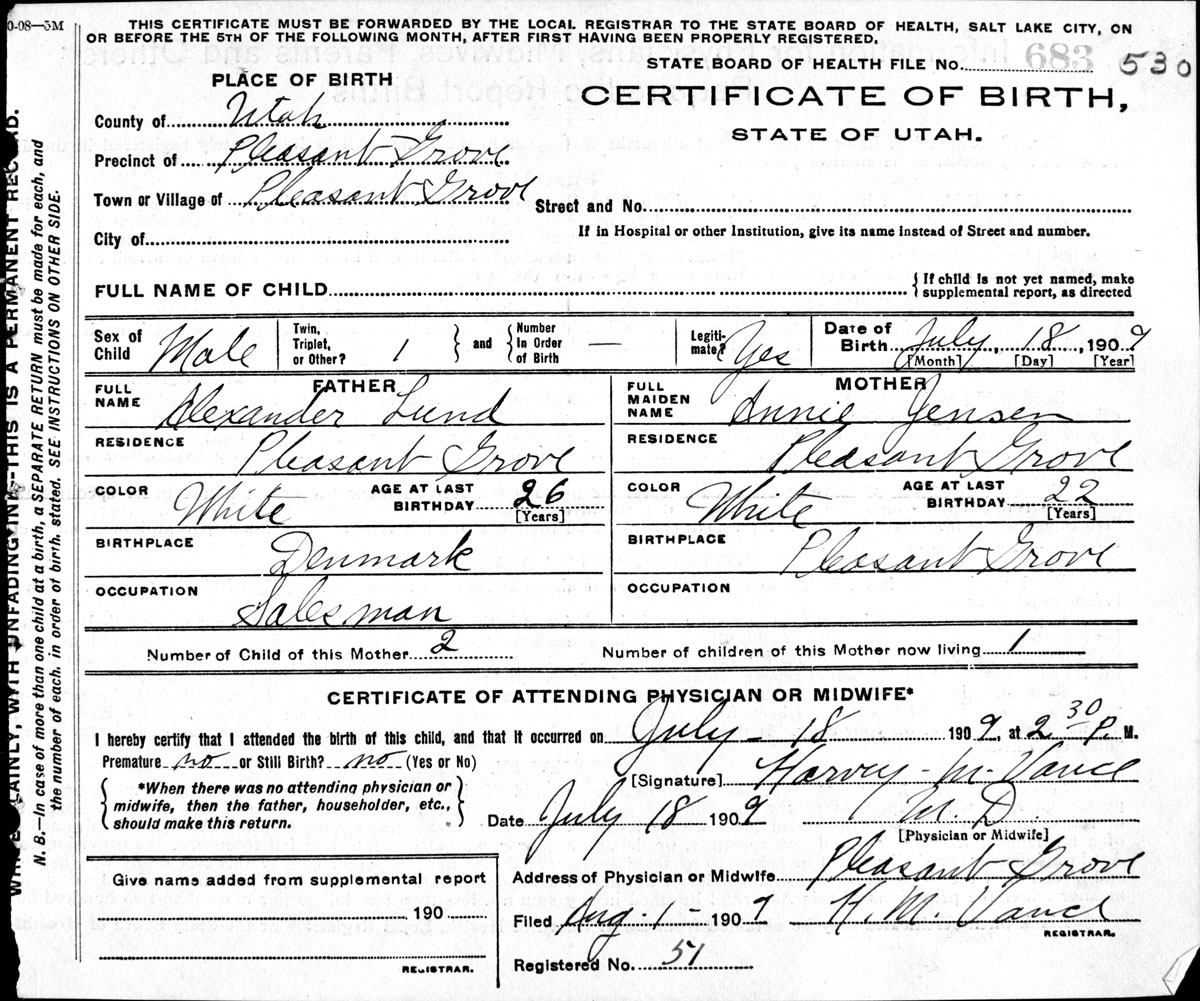 0-08—5M
THIS CERTIFICATE MUST BE FORWARDED BY THE LOCAL REGISTRAR TO THE STATE BOARD OF HEALTH, SALT LAKE CITY, ON
OR BEFORE THE 5TH OF THE FOLLOWING MONTH, AFTER FIRST HAVING BEEN PROPERLY REGISTERED.
PLACE OF BIRTH
STATE BOARD OF HEALTH FILE NO. 683 530
CERTIFICATE OF BIRTH,
STATE OF UTAH.
County of Utah
Precinct of Pleasant Grove
Town or Village of Pleasant Grove
Street and No.
City of
If in Hospital or other Institution, give its name instead of Street and number.
FULL NAME OF CHILD { If child is not yet named, make
supplemental report, as directed
Sex of Child Male
Twin, Triplet, or Other? 1 } and { Number In Order of Birth —
Legiti-mate? Yes
Date of Birth July, 18, 1909
[Month] [Day] [Year]
FATHER
FULL NAME Alexander Lund
RESIDENCE Pleasant Grove
COLOR White AGE AT LAST BIRTHDAY 26
[Years]
BIRTHPLACE Denmark
OCCUPATION Salesman
MOTHER
FULL MAIDEN NAME Annie Jensen
RESIDENCE Pleasant Grove
COLOR White AGE AT LAST BIRTHDAY 22
[Years]
BIRTHPLACE Pleasant Grove
OCCUPATION
Number of Child of this Mother 2 Number of children of this Mother now living 1
CERTIFICATE OF ATTENDING PHYSICIAN OR MIDWIFE*
I hereby certify that I attended the birth of this child, and that it occurred on July - 18 1909, at 2 30 P M.
Premature no or Still Birth? no (Yes or No)
[Signature] Harvey M. Vance
{ *When there was no attending physician or
midwife, then the father, householder, etc.,
should make this return. }
Date July 18 1909 M. D.
[Physician or Midwife]
Address of Physician or Midwife Pleasant Grove
Give name added from supplemental report
190
REGISTRAR.
Filed Aug - 1 - 1909 H. M. Vance
REGISTRAR.
Registered No. 51
WRITE PLAINLY, WITH UNFADING INK—THIS IS A PERMANENT RECORD.
N. B.—In case of more than one child at a birth, a SEPARATE RETURN must be made for each, and
the number of each, in order of birth, stated. SEE INSTRUCTIONS ON OTHER SIDE.